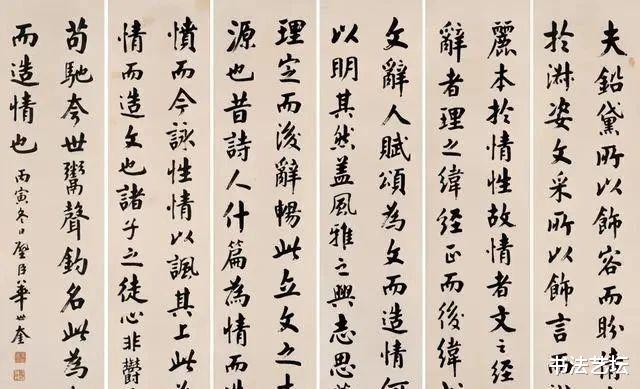 夫鉛黛所以飾容而盼
於淑姿文采所以飾言
麗本於情性故情者文之經
辭者理之緯經正而後緯
文辭人賦頌為文而造情
以明其然蓋風雅之興志思
理定而後辭暢此立文之
源也昔詩人什篇為情而
憤而今詠性情以諷其上此
情而造文也諸子之徒心非鬱
苟馳夸世鬻聲釣名此為
而造情也 丙寅冬日璧臣華世奎
书法艺坛